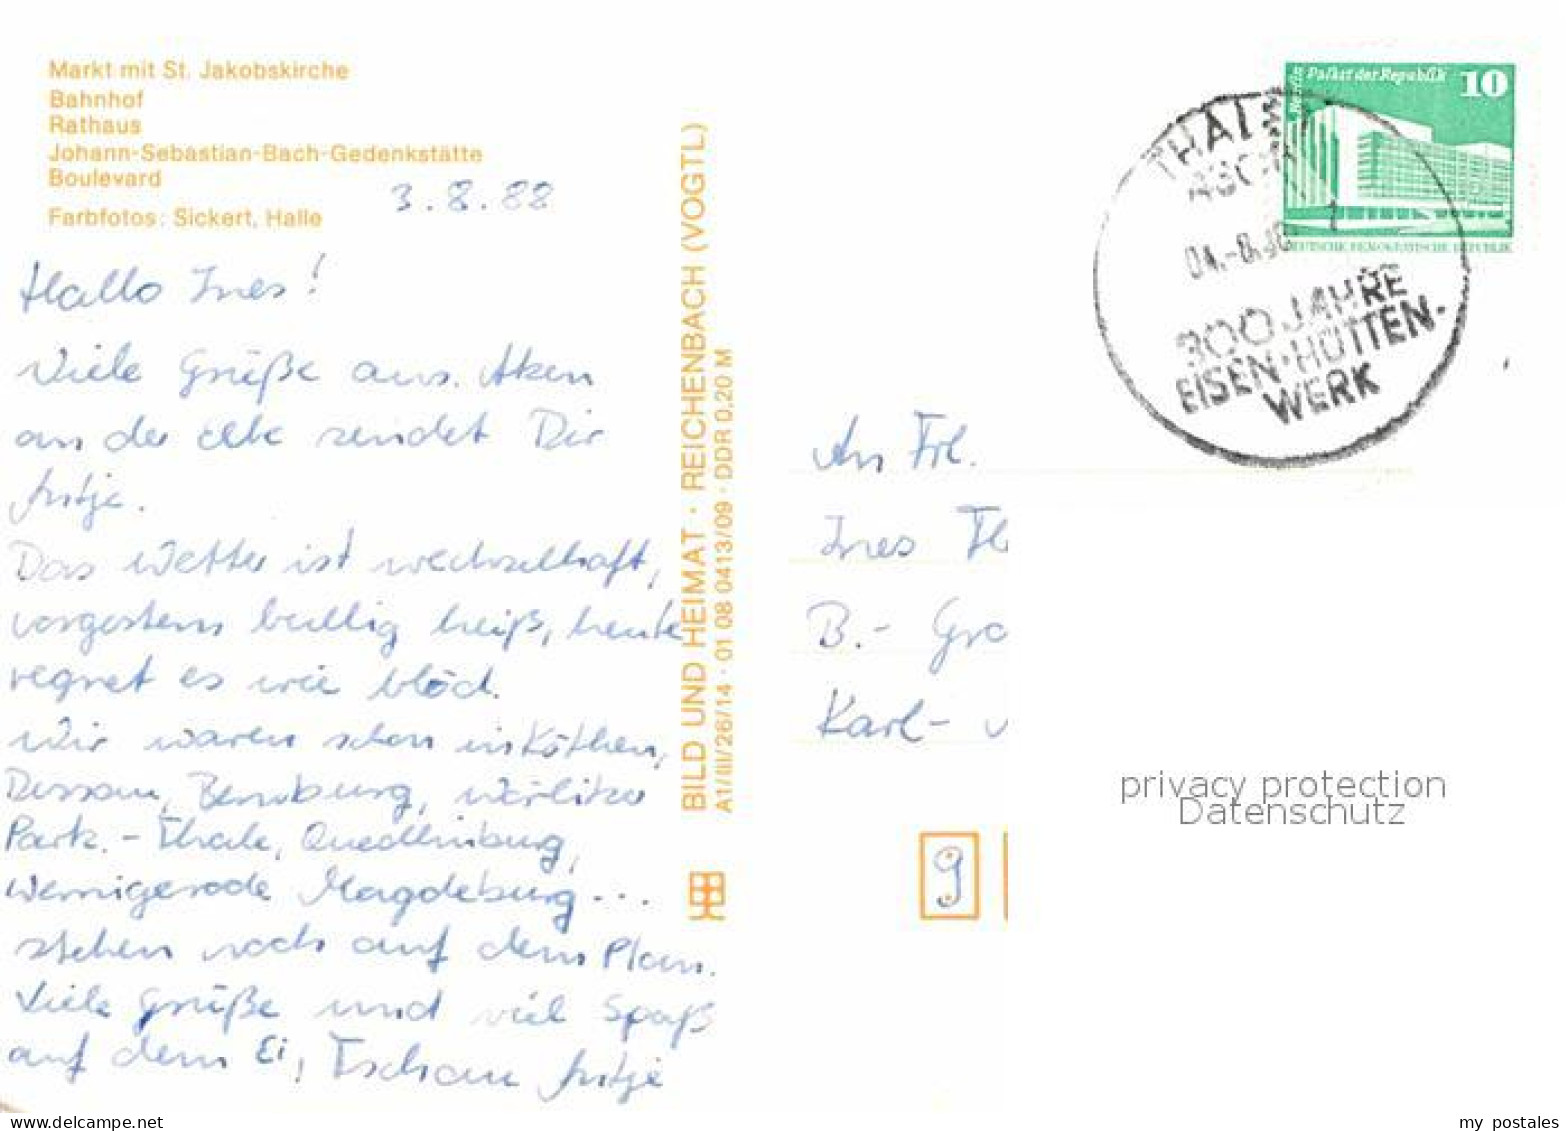 Markt mit St. Jakobskirche
Bahnhof
Rathaus
Johann-Sebastian-Bach-Gedenkstätte
Boulevard
Farbfotos: Sickert, Halle
3.8.88
Hallo Ines!
Viele Grüße aus Aken
an der Elbe sendet Dir
Antje.
Das Wetter ist wechselhaft,
vorgestern bullig heiß, heute
regnet es wie blöd.
Wir waren schon in Köthen,
Dessau, Bernburg, Wörlitzer
Park. - Thale, Quedlinburg,
Wernigerode Magdeburg...
stehen noch auf dem Plan.
Viele Grüße und viel Spaß
auf dem Ei, Tschau Antje
BILD UND HEIMAT · REICHENBACH (VOGTL)
A1/III/26/14 · 01 08 0413/09 · DDR 0,20 M
Berlin
Palast der Republik 10
DEUTSCHE DEMOKRATISCHE REPUBLIK
THALE
300 JAHRE
EISEN-HÜTTEN-
WERK
An Frl.
Ines
B.-
Karl-
9
privacy protection
Datenschutz
my postales